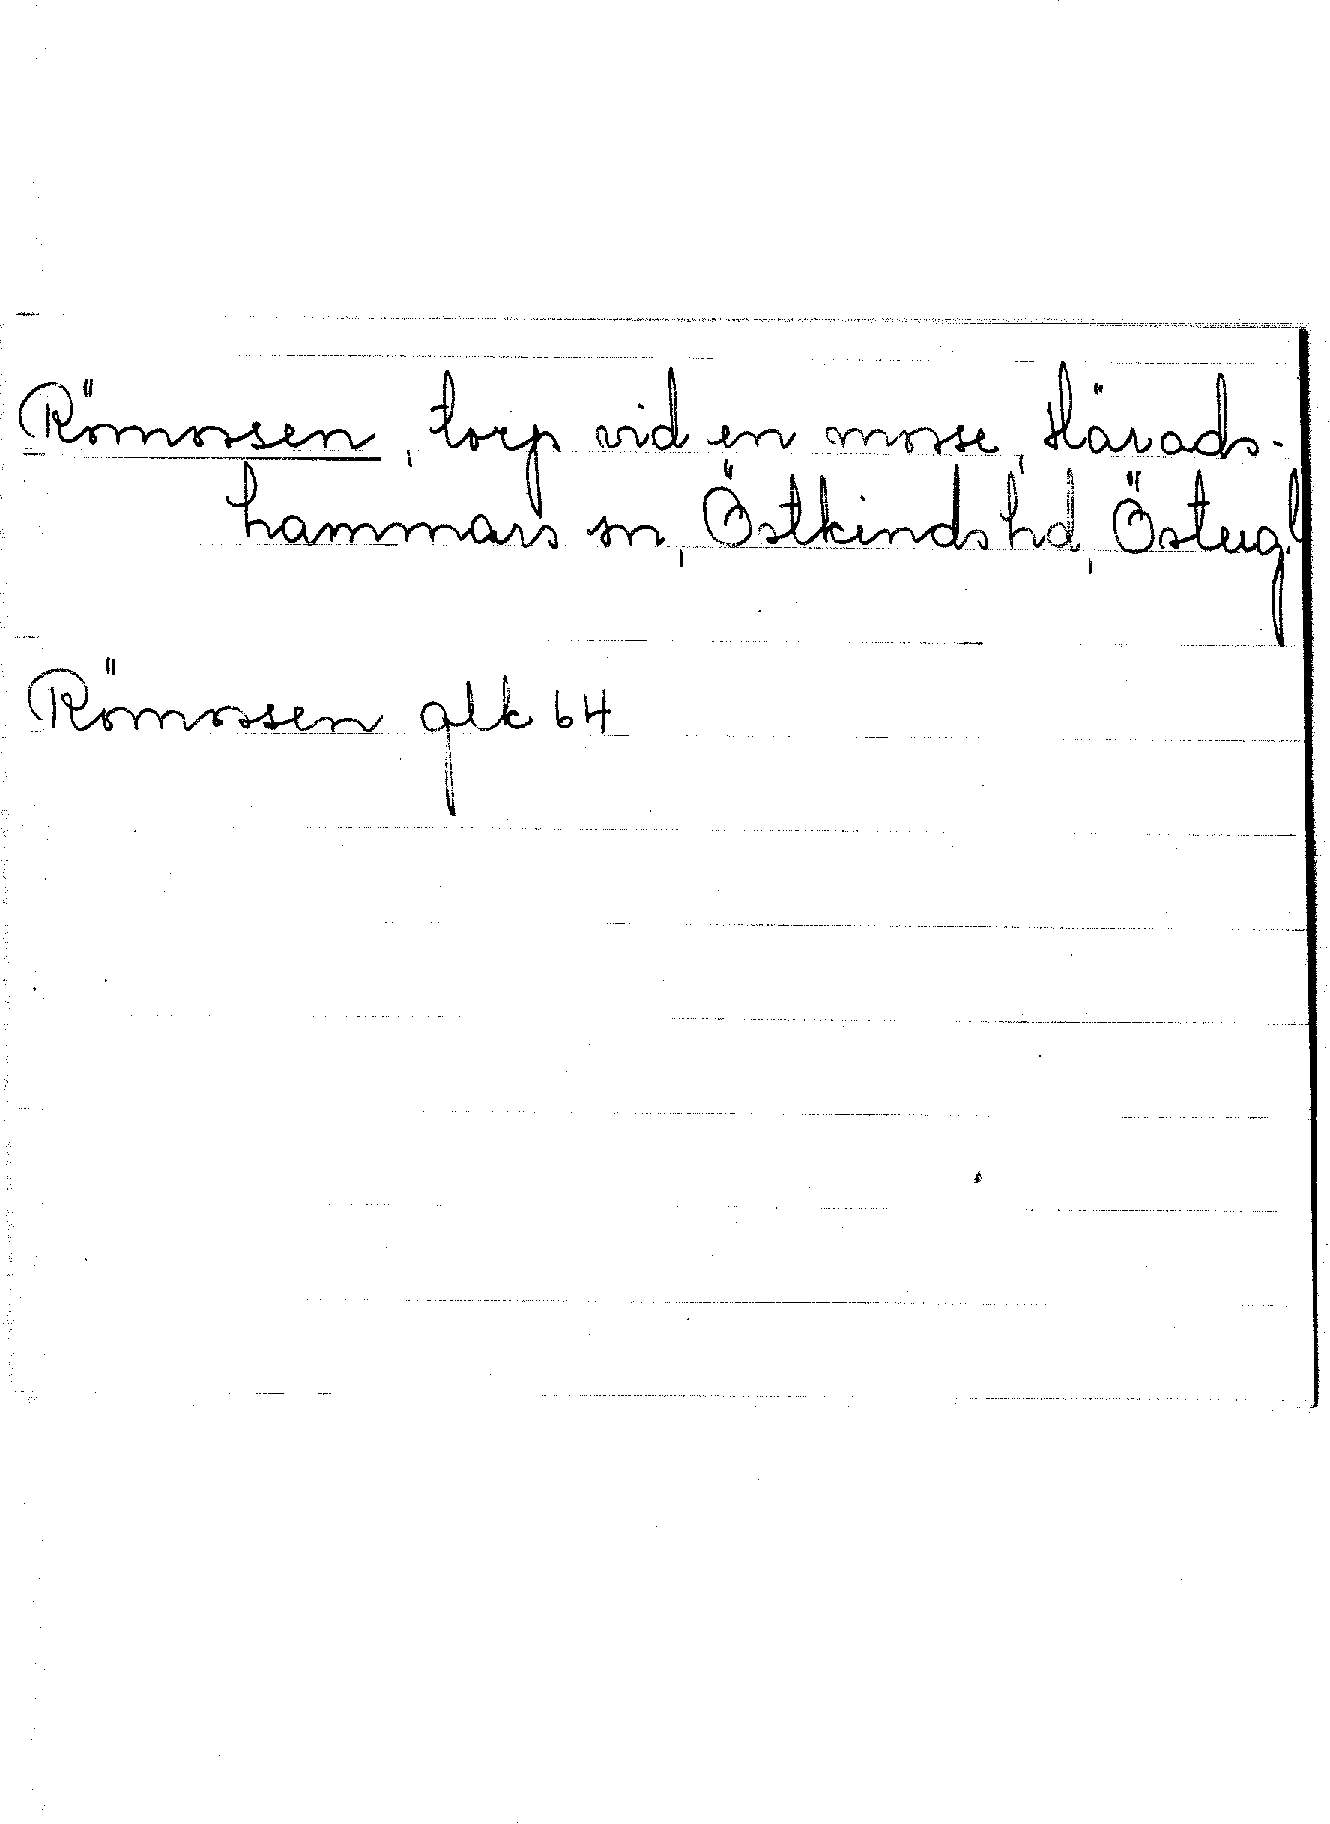 Römossen, torp vid en mosse, Härads-
hammars sn, Östkinds hd, Östergl
Römossen glk 64